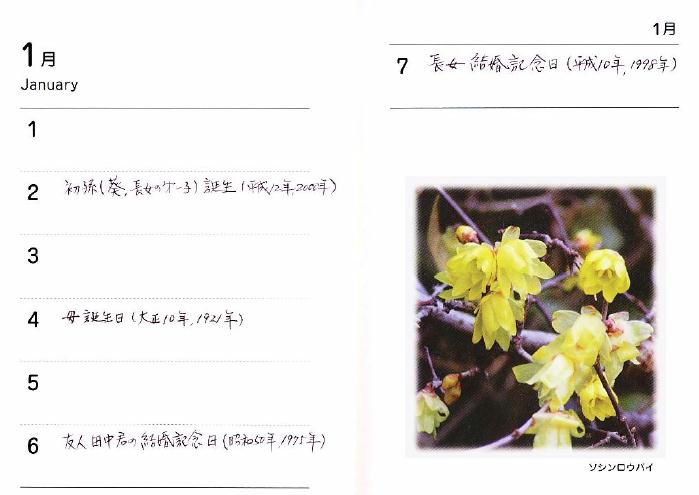 1月
January
1
2 初孫(葵,長女の才一子)誕生(平成12年,2000年)
3
4 母誕生日(大正10年,1921年)
5
6 友人田中君の結婚記念日(昭和50年,1975年)
1月
7 長女結婚記念日(平成10年,1998年)
ソシンロウバイ